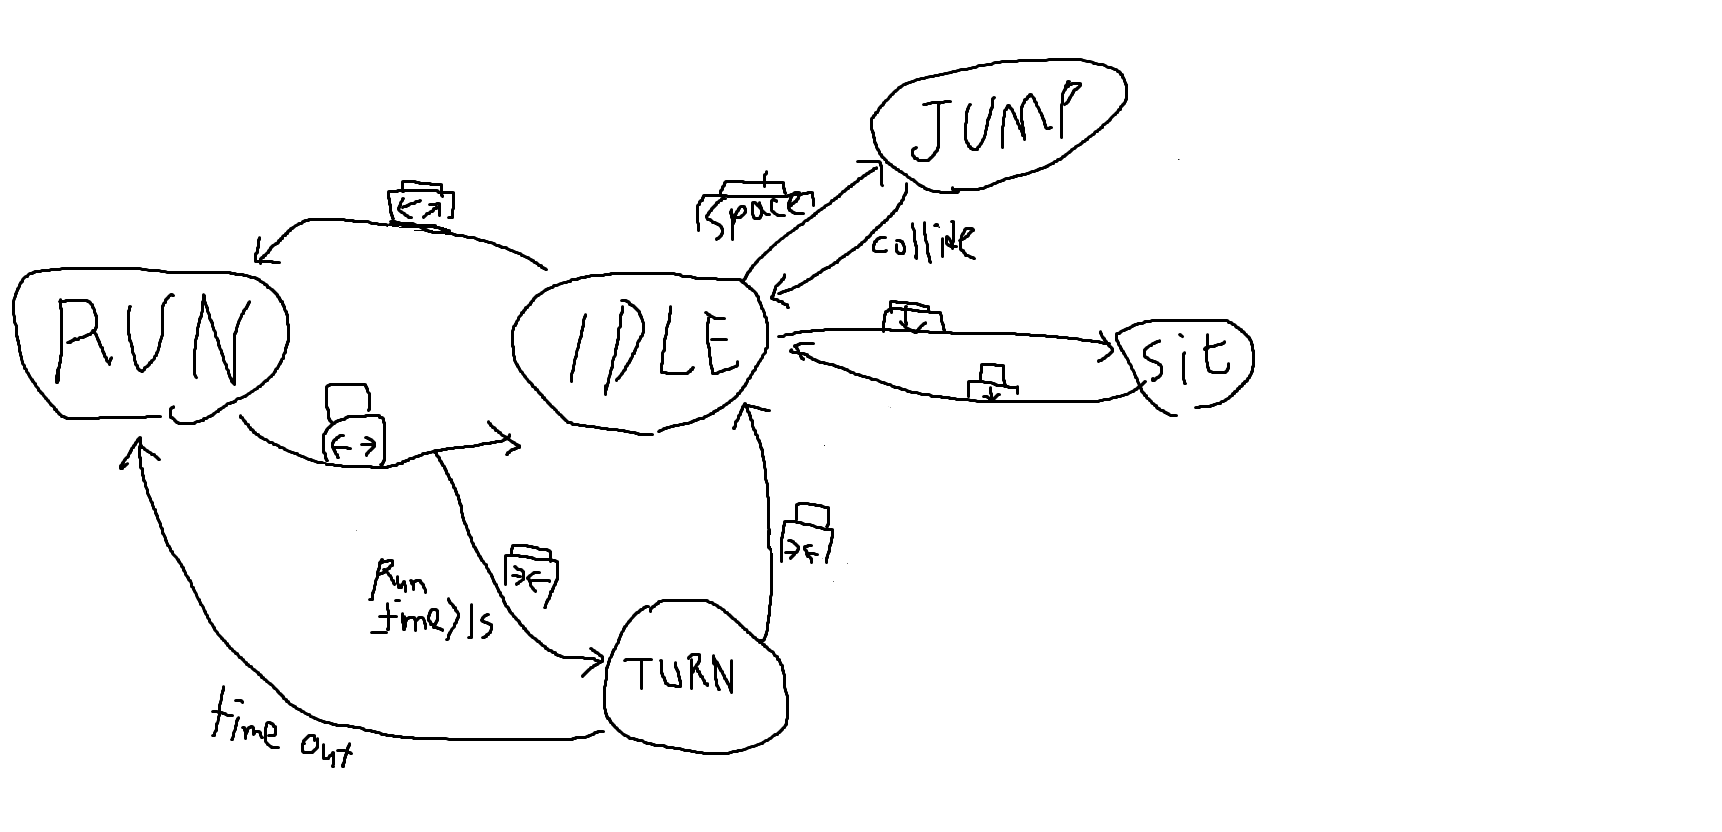 JUMP
Space
collide
RUN
IDLE
sit
Run
time>1s
TURN
time out